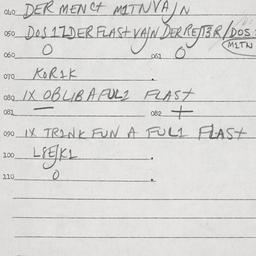 040 DER MENCT MITNVAJN
050 DOS 1Z DER FLAST VAJN DER REJTER/DOS
060 O 061 O MITN
070 KORIK
080 IX OBLIB A FUL2 FLAST
081 — 082 +
090 IX TRINK FUN A FUL1 FLAST
100 LPEJK1
110 O